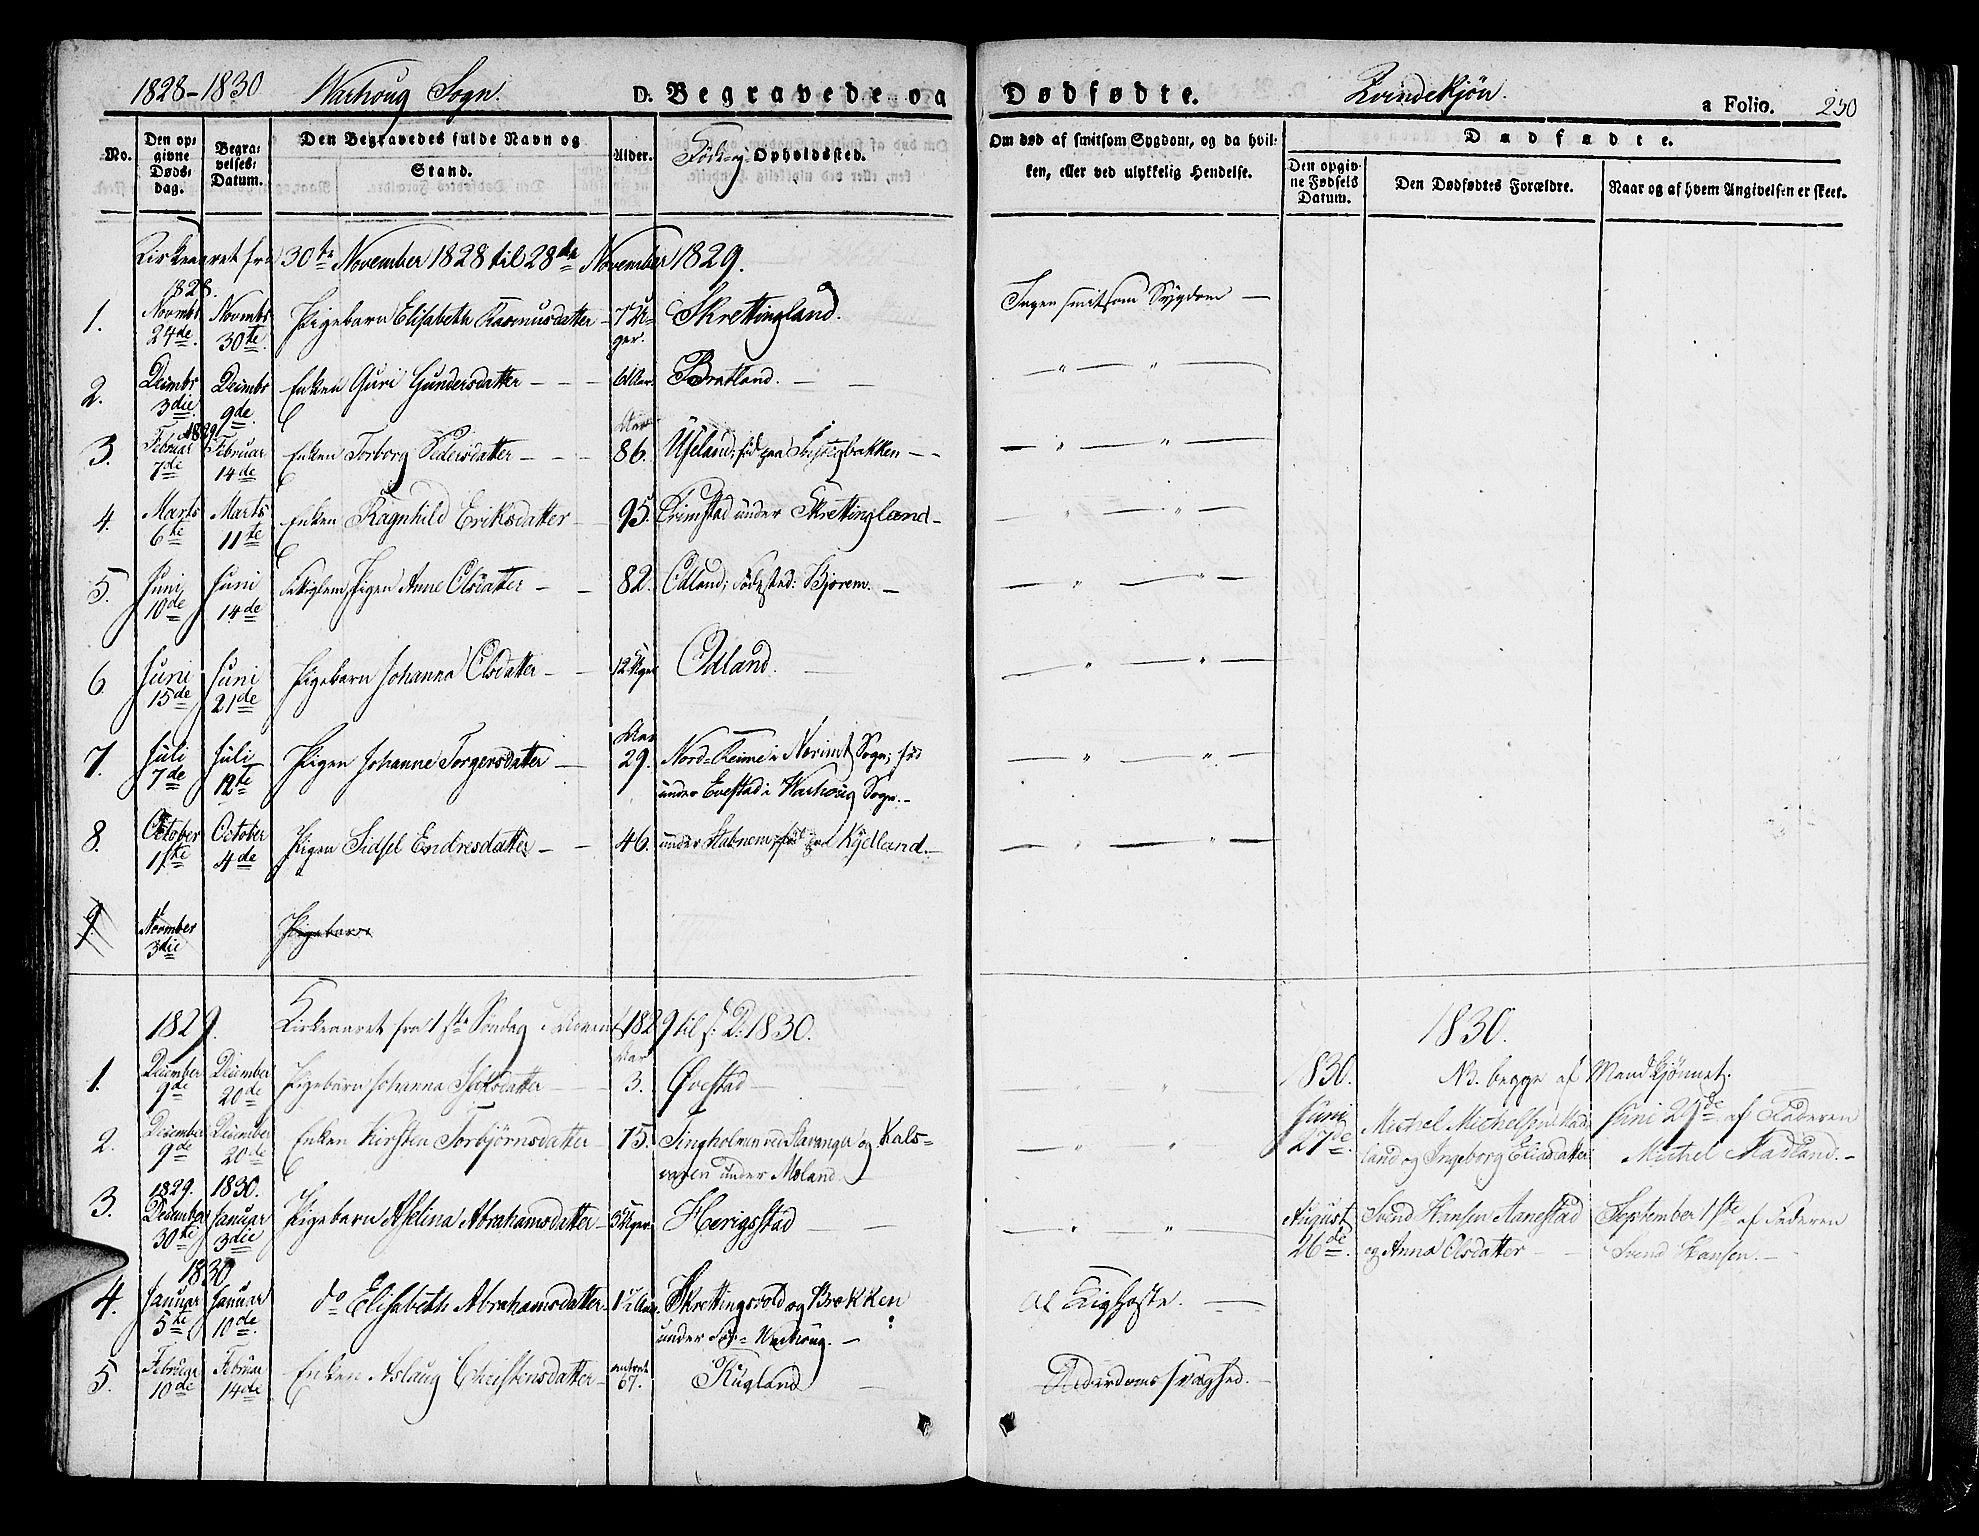 1828-1830 Warhoug Sogn. D. Begravede og Dødfødte. Kvindekjøn. a Folio. 250
No. Den opgivne Døds-dag. Begravelses-Datum. Den Begravedes fulde Navn og Stand. Alder. Føde og Opholdssted. Om død af smitsom Sygdom, og da hvilken, eller ved ulykkelig Hendelse. Dødfødte. Den opgivne Fødsels Datum. Den Dødfødtes Forældre. Naar og af hvem Angivelsen er skeet.
Kirkeaaret fra 30te November 1828 til 28de November 1829.
1828.
1. Novmbr 24de Novmbr 30te Pigebarn Elisabeth Rasmusdatter 7 Uger. Skrettingland. Ingen smitsom Sygdom
2. Dcimbr 3die Dcimbr 9de Enken Guri Gundersdatter Aar. Bratland. — " — " —
1829
3. Februar 7de Februar 14de Enken Torborg Pedersdatter Aar 86. Useland; — " — " —
4. Marts 6te Marts 11te Enken Ragnhild Eriksdatter 95. Grimstad under Skrettingland — " — " —
5. Juni 10de Juni 14de Pigen Anne Olsdatter 82. Odland; Fødested: Bjorem. — " — " —
6. Juni 15de Juni 21de Pigebarn Johanna Olsdatter 12 Uger Odland. — " — " —
7. Juli 7de Juli 12te Pigen Johanne Torgersdatter Aar 29. Nord-Reime i Sogn; fød — " — " —
under Evestad i Warhoug Sogn.
8. October 1ste October 4de Pigen Sidsel Endresdatter 46. under Stabnem; fød paa Kydland. — " — " —
9. Novmber 3die Pigebarn
1829. Kirkeaaret fra 1ste Søndag i Advent 1829 til s: D: 1830. 1830.
1. December 9de December 20de Pigebarn Johanna Aar 3. Øvestad " " 1830. NB. begge af Mandkjønnet.
2. December 9de December 20de Enken Kirsten Torbjørnsdatter 75. Tingholmen ved Stavanger og Kals-
vagen under — " — " — Juni 27de. Michel Michelsen Mad-
land og Ingeborg Eliasdatter Juni 27de af Faderen
Michel Madland.
3. 1829. December 30te 1830. Januar 3die Pigebarn Aselina Abrahamsdatter Uger. Herigstad — " — " — August 26de. Svend Hansen Aanestad
og Anna Olsdatter September 1ste af Faderen
Svend Hansen.
1830
4. Januar 5te Januar 10de do Elisabeth Abrahamsdatter Aar. Skrettingsvold og Brekken
under Sør-Warhoug. Af Kighoste.
5. Februar 10de Februar 14de Enken Aslaug Christensdatter omtrent 67. Rugland Alderdoms svaghed.